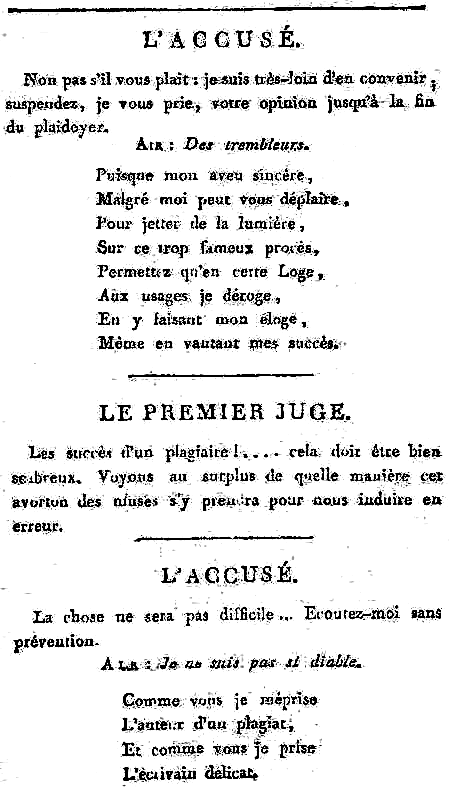 L'ACCUSÉ.
Non pas s'il vous plait : je suis très-loin d'en convenir,
suspendez, je vous prie, votre opinion jusqu'à la fin
du plaidoyer.
AIR : Des trembleurs.
Puisque mon aveu sincére,
Malgré moi peut vous déplaire,
Pour jetter de la lumiére,
Sur ce trop fameux procès,
Permettez qu'en cette Loge,
Aux usages je déroge,
En y faisant mon éloge,
Même en vantant mes succès.
LE PREMIER JUGE.
Les succès d'un plagiaire !.... cela doit être bien
scabreux. Voyons au surplus de quelle manière cet
avorton des muses s'y prendra pour nous induire en
erreur.
L'ACCUSÉ.
La chose ne sera pas difficile... Ecoutez-moi sans
prévention.
AIR : Je ne suis pas si diable.
Comme vous je méprise
L'auteur d'un plagiat,
Et comme vous je prise
L'écrivain délicat.